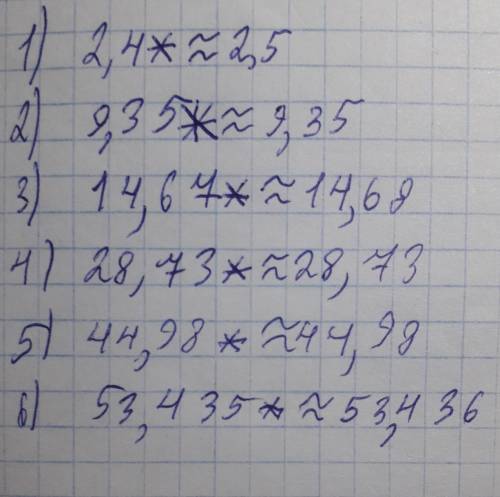 1) 2,4* ≈ 2,5
2) 9,35* ≈ 9,35
3) 14,67* ≈ 14,68
4) 28,73* ≈ 28,73
5) 44,98* ≈ 44,98
6) 53,435* ≈ 53,436